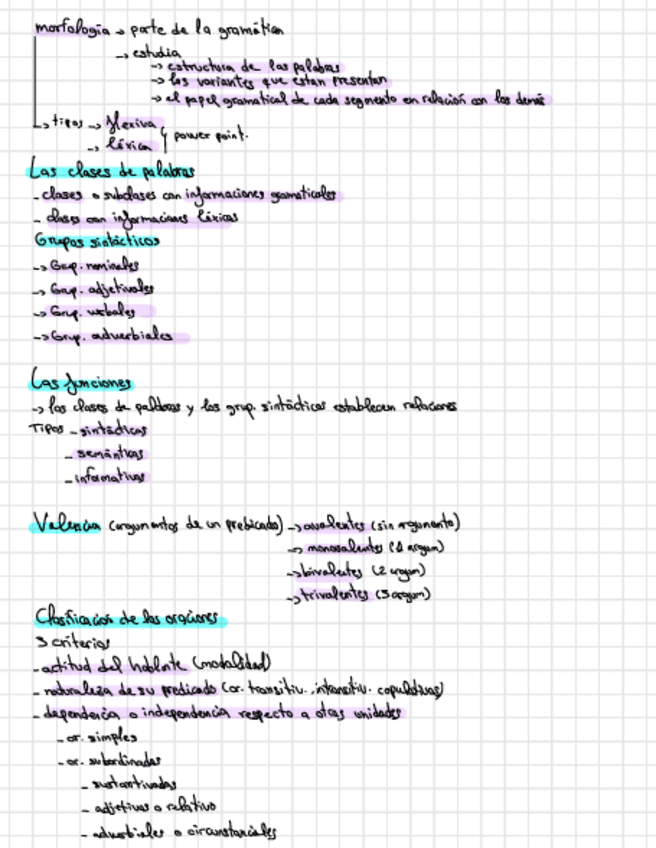 morfología → parte de la gramática
→ estudia
→ estructura de las palabras
→ las variantes que estan presentan
→ el papel gramatical de cada segmento en relación con los demás
→ tipos → flexiva
→ léxica } power point.
Las clases de palabras
- clases o subclases con informaciones gramaticales
- clases con informaciones léxicas
Grupos sintácticos
→ Grup. nominales
→ Grup. adjetivales
→ Grup. verbales
→ Grup. adverbiales
Las funciones
→ las clases de palabras y los grup. sintácticos establecen relaciones
Tipos - sintácticas
- semánticas
- informativas
Valencia (argumentos de un predicado) → avalentes (sin argumento)
→ monovalentes (1 argum)
→ bivalentes (2 argum)
→ trivalentes (3 argum)
Clasificación de las oraciones
3 criterios
- actitud del hablante (modalidad)
- naturaleza de su predicado (or. transitiv. intransitiv. copulativas)
- dependencia o independencia respecto a otras unidades
- or. simples
- or. subordinadas
- sustantivadas
- adjetivas o relativo
- adverbiales o circunstanciales